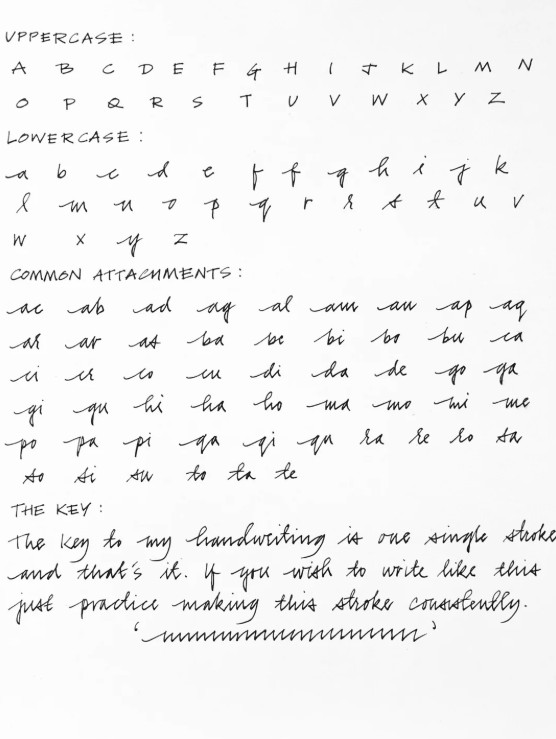 UPPERCASE:
A B C D E F G H I J K L M N
O P Q R S T U V W X Y Z
LOWERCASE:
a b c d e f f g h i j k
l m n o p q r r s t u v
w x y z
COMMON ATTACHMENTS:
ac ab ad ag al am an ap aq
ar ar as ba be bi bo bu ca
ci cr co cu di da de go ga
gi gu hi ha ho ma mo mi me
po pa pi qa qi qu ra re ro sa
so si su to ta te
THE KEY:
The key to my handwriting is one single stroke
and that's it. If you wish to write like this
just practice making this stroke consistently.